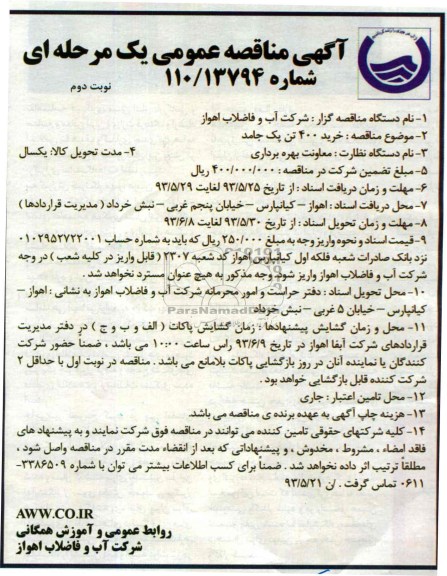 آگهی مناقصه عمومی یک مرحله ای
شماره ۱۱۰/۱۳۷۹۴
نوبت دوم
۱- نام دستگاه مناقصه گزار : شرکت آب و فاضلاب اهواز
۲- موضوع مناقصه : خرید ۴۰۰ تن پک جامد
۳- نام دستگاه نظارت : معاونت بهره برداری ۴- مدت تحویل کالا: یکسال
۵- مبلغ تضمین شرکت در مناقصه : ۴۰۰/۰۰۰/۰۰۰ ریال
۶- مهلت و زمان دریافت اسناد : از تاریخ ۹۳/۵/۲۵ لغایت ۹۳/۵/۲۹
۷- محل دریافت اسناد : اهواز – کیانپارس – خیابان پنجم غربی – نبش خرداد ( مدیریت قراردادها )
۸- مهلت و زمان تحویل اسناد : از تاریخ ۹۳/۵/۳۰ لغایت ۹۳/۶/۸
۹- قیمت اسناد و نحوه واریز وجه به مبلغ ۲۵۰/۰۰۰ ریال که باید به شماره حساب ۰۱۰۲۹۵۲۷۲۲۰۰۱
نزد بانک صادرات شعبه فلکه اول کیانپارس اهواز کد شعبه ۲۳۰۷ ( قابل واریز در کلیه شعب ) در وجه
شرکت آب و فاضلاب اهواز واریز شود. وجه مذکور به هیچ عنوان مسترد نخواهد شد .
۱۰- محل تحویل اسناد : دفتر حراست و امور محرمانه شرکت آب و فاضلاب اهواز به نشانی : اهواز –
کیانپارس – خیابان ۵ غربی – نبش خرداد
۱۱- محل و زمان گشایش پیشنهادها : زمان گشایش پاکات ( الف و ب و ج ) در دفتر مدیریت
قراردادهای شرکت آبفا اهواز در تاریخ ۹۳/۶/۹ راس ساعت ۱۰:۰۰ می باشد . ضمناً حضور شرکت
کنندگان یا نماینده آنان در روز بازگشایی پاکات بلامانع می باشد . مناقصه در نوبت اول با حداقل ۲
شرکت کننده قابل بازگشایی خواهد بود .
۱۲- محل تامین اعتبار : جاری
۱۳- هزینه چاپ آگهی به عهده برنده ی مناقصه می باشد.
۱۴- کلیه شرکتهای حقوقی تامین کننده می توانند در مناقصه فوق شرکت نمایند و به پیشنهاد های
فاقد امضاء ، مشروط ، مخدوش ، و پیشنهاداتی که بعد از انقضاء مدت مقرر در مناقصه واصل شود ،
مطلقاً ترتیب اثر داده نخواهد شد . ضمناً برای کسب اطلاعات بیشتر می توان با شماره ۳۳۸۶۵۰۹-
۰۶۱۱ تماس گرفت . ن ۹۳/۵/۲۱
AWW.CO.IR
روابط عمومی و آموزش همگانی
شرکت آب و فاضلاب اهواز